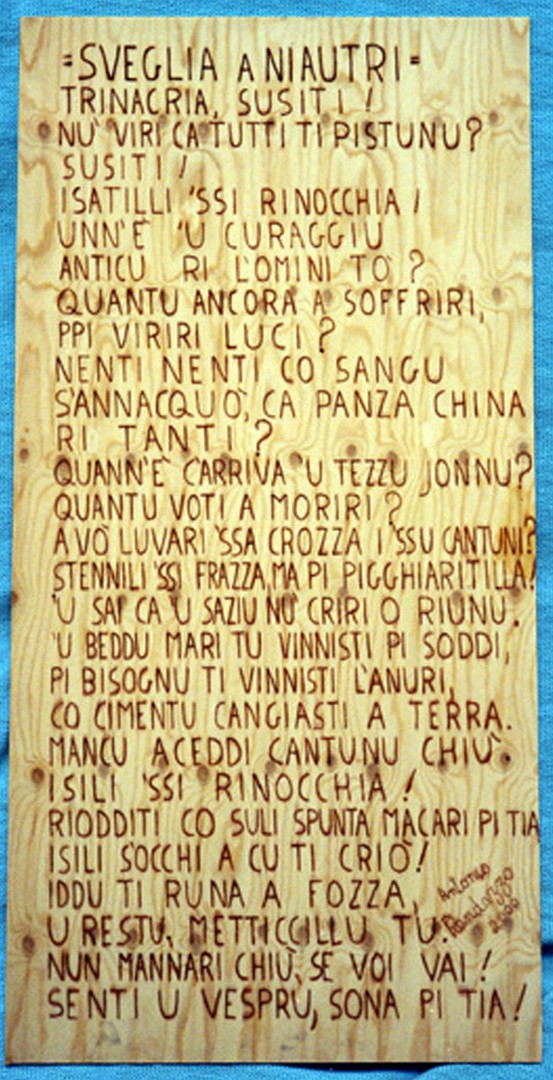 =SVEGLIA A NIAUTRI=
TRINACRIA, SUSITI!
NU' VIRI CA TUTTI TI PISTUNU?
SUSITI!
ISATILLI 'SSI RINOCCHIA!
UNN'È 'U CURAGGIU
ANTICU RI L'OMINI TÒ?
QUANTU ANCORA A SOFFRIRI,
PPI VIRIRI LUCI?
NENTI NENTI CO SANGU
S'ANNACQUÒ, CA PANZA CHINA
RI TANTI?
QUANN'È C'ARRIVA 'U TEZZU JONNU?
QUANTU VOTI A MORIRI?
A VÒ LUVARI 'SSA CROZZA I 'SSU CANTUNI?
STENNILI 'SSI FRAZZA, MA PI PIGGHIARITILLA!
'U SAI CA 'U SAZIU NU' CRIRI O RIUNU.
'U BEDDU MARI TU VINNISTI PI SODDI,
PI BISOGNU TI VINNISTI L'ANURI,
CO CIMENTU CANGIASTI A TERRA.
MANCU ACEDDI CANTUNU CHIÙ.
ISILI 'SSI RINOCCHIA!
RIODDITI CO SULI SPUNTA MACARI PI TIA
ISILI S'OCCHI A CU TI CRIÒ!
IDDU TI RUNA A FOZZA,
U RESTU, METTICCILLU TU.
NUN MANNARI CHIÙ, SE VOI VAI!
SENTI U VESPRU, SONA PI TIA!
Antonio
Randazzo
2000